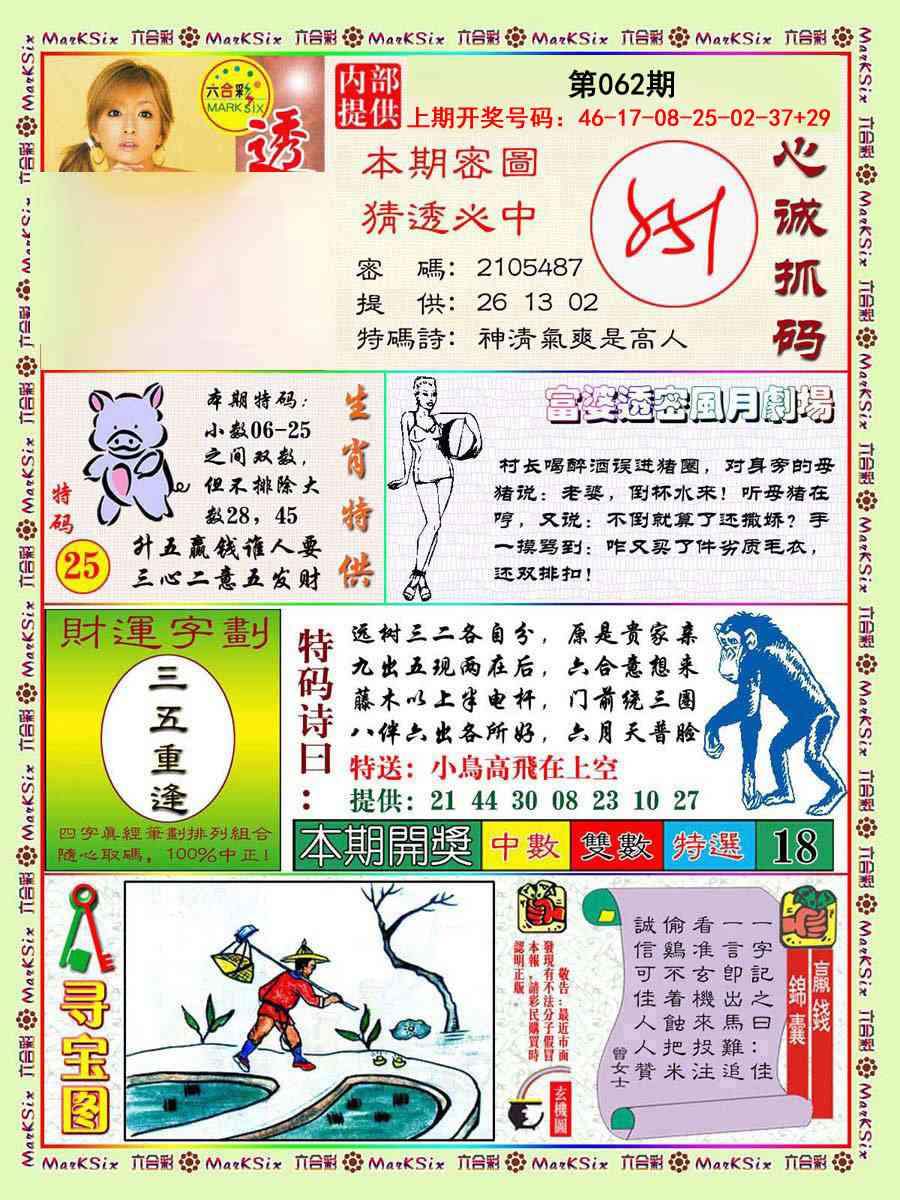 MarKSix 六合彩 MarKSix 六合彩 MarKSix 六合彩 MarKSix 六合彩 MarKSix 六合彩
六合彩
MARK SIX
透
内部
提供
第062期
上期开奖号码：46-17-08-25-02-37+29
本期密圖
猜透必中
密　碼：2105487
提　供：26 13 02
特碼詩：神清氣爽是高人
心诚抓码
本期特码：
小数06-25
之间双数，
但不排除大
数28，45
升五赢钱谁人要
三心二意五发财
特码
25
生肖特供
富婆透密風月劇場
村长喝醉酒误进猪圈，对身旁的母
猪说：老婆，倒杯水来！听母猪在
哼，又说：不倒就算了还撒娇？手
一摸骂到：咋又买了件劣质毛衣，
还双排扣！
財運字劃
三五重逢
四字眞經筆劃排列組合
隨心取碼，100%中正!
特码诗曰：
远树三二各自分，原是贵家亲
九出五现两在后，六合意想来
藤木以上半电杆，门前统三围
八伴六出各所好，六月天普脸
特送：小鳥高飛在上空
提供：21 44 30 08 23 10 27
本期開獎 中數 雙數 特選 18
寻宝图
敬告：最近市面
發現有不法分子假冒
本報，請彩民購買時
認明正版。
玄機圖
一字記之曰：佳
一言即出馬難追
看准玄機來投注
偷鷄不着蝕把米
誠信可佳人人贊
曾女士
贏錢
錦囊
MarKSix 六合彩 MarKSix 六合彩 MarKSix 六合彩 MarKSix 六合彩 MarKSix 六合彩